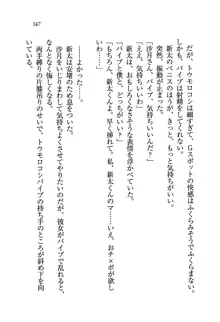 トウモロコシは細すぎて、Gスポットの快感はふくらみそうでふくらま
ない。バイブは射精をしてくれないし、気持ちよくない。
新太のペニスのほうが、もっと気持ちいい。
突然、振動が止まった。
「沙月さん。バイブ、気持ちいいんだ？」
新太は、おもしろくなさそうな表情を浮かべている。
「バイブと僕と、どっちがいい？」
「もちろん、新太くんのママ……おチ×ポが欲しいの……早く挿れて、新太くんっ」
新太は安堵のため息をついた。
沙月を気持ちよくさせてやりたいのだが、彼女がバイブで乱れると、
両手縛りの片膝吊りで、トウモロコシバイブの持ち手のところが斜め下
147